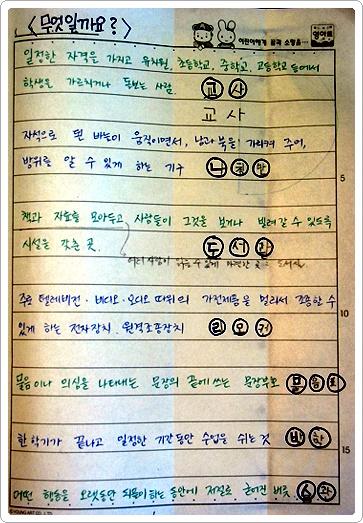 <무엇일까요?>
어린이에게 꿈과 소망을…
영아트
일정한 자격을 가지고 유치원, 초등학교, 중학교, 고등학교 등에서
학생을 가르치거나 돌보는 사람. 교사
교사
자석으로 된 바늘이 움직이면서, 남과 북을 가리켜 주어,
방위를 알 수 있게 하는 기구 나침반
5
책과 자료를 모아두고 사람들이 그것을 보거나 빌려갈 수 있도록
시설을 갖춘 곳. 도서관
10
주로 텔레비전·비디오·오디오 따위의 가전제품을 멀리서 조종할 수
있게 하는 전자장치. 원격조종장치 리모컨
물음이나 의심을 나타내는 문장의 끝에 쓰는 문장부호 물음표
한 학기가 끝나고 일정한 기간동안 수업을 쉬는 것 방학
15
어떤 행동을 오랫동안 되풀이하는 동안에 저절로 굳어진 버릇
©YOUNG ART CO., LTD